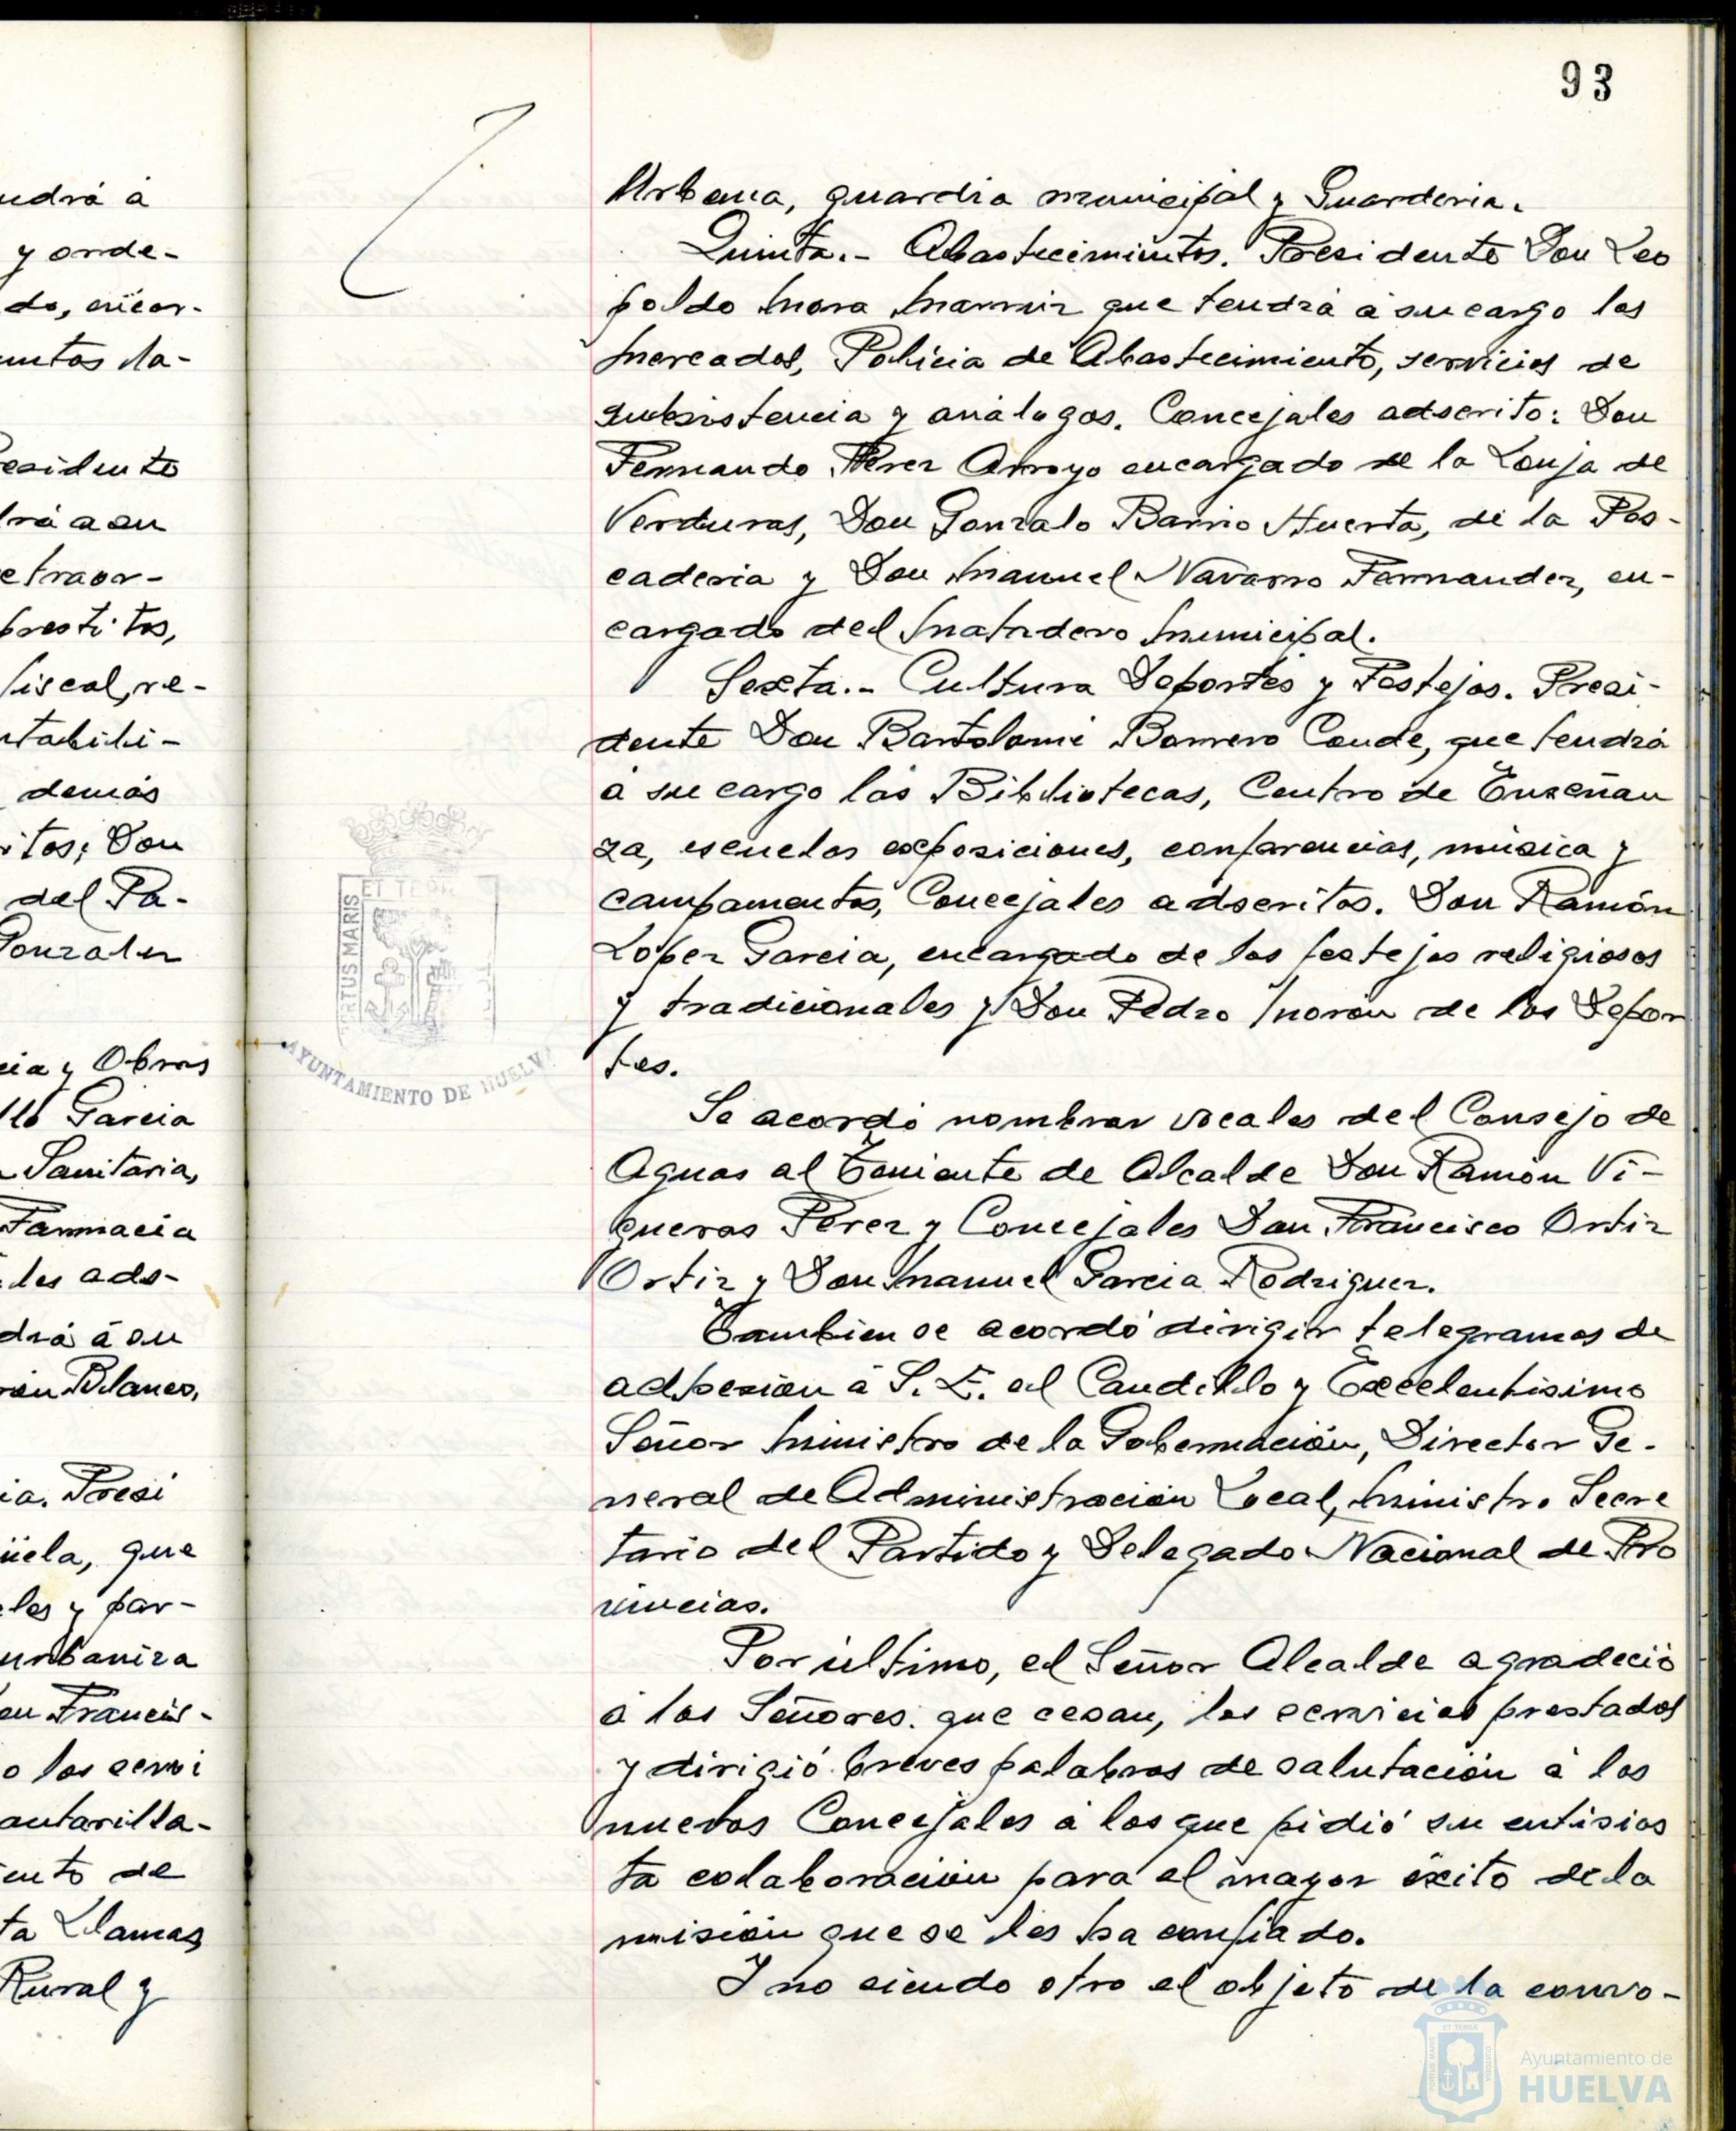 udrá á
y orde-
do, encar-
untos da-
residente
drá a su
etraor-
prestitos,
fiscal, re-
ntabili-
demás
itos; Don
del Pa-
Gonzalez
cia y Obras
llo Garcia
Sanitaria,
Farmacia
les ads-
drá á su
Blanco,
ia. Presi
üela, que
les y par-
urbaniza
on Francis-
o los servi
antarilla-
ento de
ta Llamas
Rural y
93
Urbana, guardia municipal y Guarderia.
Quinta.- Abastecimientos. Presidente Don Leo
poldo Mora Marmir que tendrá á su cargo los
Mercados, Policia de Abastecimiento, servicios de
subsistencia y análogos. Concejales adscrito: Don
Fernando Perez Arroyo encargado de la Lonja de
Verduras, Don Gonzalo Barrio Huerta, de la Pes-
caderia y Don Manuel Navarro Fernandez, en-
cargado del Matadero Municipal.
Sexta.- Cultura Deportes y Festejos. Presi-
dente Don Bartolomé Borrero Conde, que tendrá
á su cargo las Bibliotecas, Centro de Enseñan
za, escuelas exposiciones, conferencias, música y
campamentos, Concejales adscritos. Don Ramón
Lopez Garcia, encargado de los festejos religiosos
y tradicionales y Don Pedro Morón de los Depor
tes.
Se acordó nombrar vocales del Consejo de
Aguas al Teniente de Alcalde Don Ramón Vi-
gueras Perez y Concejales Don Francisco Ortiz
Ortiz y Don Manuel Garcia Rodriguez.
Tambien se acordó dirigir telegramas de
adhesión á S. E. el Caudillo y Excelentisimo
Señor Ministro de la Gobernación, Director Ge-
neral de Administración Local, Ministro Secre
tario del Partido y Delegado Nacional de Pro
vincias.
Por último, el Señor Alcalde agradeció
á los Señores que cesan, los servicios prestados
y dirigió breves palabras de salutación á los
nuevos Concejales á los que pidió su entisias
ta colaboración para el mayor éxito de la
misión que se les ha confiado.
Y no siendo otro el objeto de la convo-
ET TERR
PORTUS MARIS
AYUNTAMIENTO DE HUELVA
Ayuntamiento de
HUELVA